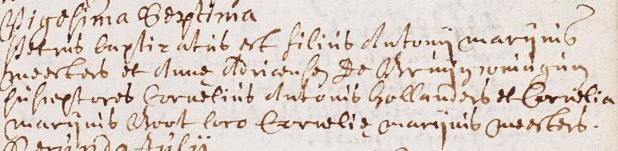 Vigesima Septima
Petrus baptizatus est filius Antonij marijnis
meesters et Anne Adriaensen de Bruijn coniugum
susceptores Cornelius Antonis hollanders et Cornelia
marijnis Boot loco Cornelie marijnis meesters.
Secunda Julij